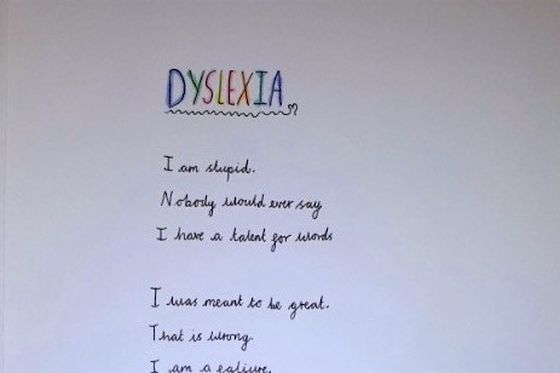 DYSLEXIA
I am stupid.
Nobody would ever say
I have a talent for words
I was meant to be great.
That is wrong.
I am a failure.